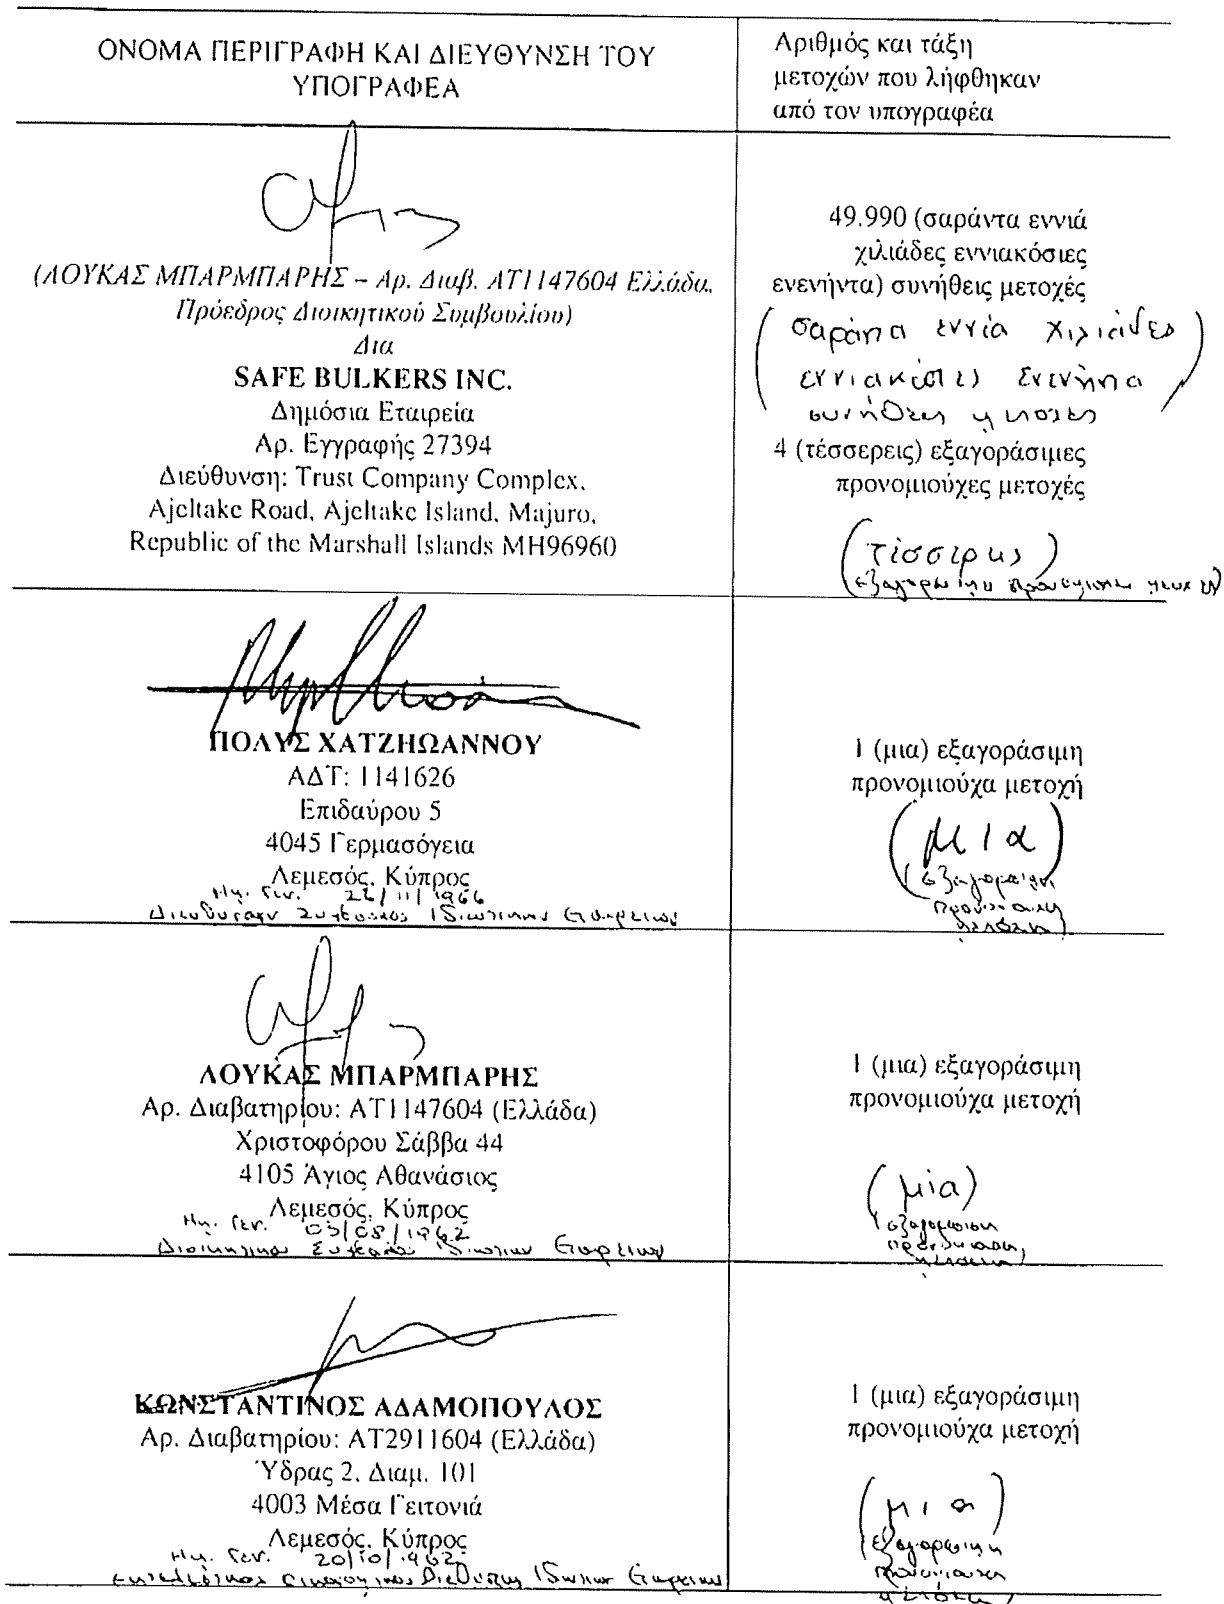 ΟΝΟΜΑ ΠΕΡΙΓΡΑΦΗ ΚΑΙ ΔΙΕΥΘΥΝΣΗ ΤΟΥ
ΥΠΟΓΡΑΦΕΑ
Αριθμός και τάξη
μετοχών που λήφθηκαν
από τον υπογραφέα
(ΛΟΥΚΑΣ ΜΠΑΡΜΠΑΡΗΣ – Αρ. Διαβ. ΑΤ1147604 Ελλάδα,
Πρόεδρος Διοικητικού Συμβουλίου)
Δια
SAFE BULKERS INC.
Δημόσια Εταιρεία
Αρ. Εγγραφής 27394
Διεύθυνση: Trust Company Complex,
Ajeltake Road, Ajeltake Island, Majuro,
Republic of the Marshall Islands MH96960
49.990 (σαράντα εννιά
χιλιάδες εννιακόσιες
ενενήντα) συνήθεις μετοχές
(σαράντα εννία χιλιάδες
εννιακόσιες ενενήντα
συνήθεις μετοχές
4 (τέσσερεις) εξαγοράσιμες
προνομιούχες μετοχές
(τέσσερις)
ΠΟΛΥΣ ΧΑΤΖΗΩΑΝΝΟΥ
ΑΔΤ: 1141626
Επιδαύρου 5
4045 Γερμασόγεια
Λεμεσός, Κύπρος
Ημ. Γεν. /11/1966
Διευθύνων Σύμβουλος Ιδιωτικών Εταιρειών
1 (μια) εξαγοράσιμη
προνομιούχα μετοχή
(μια)
(εξαγοράσιμη
προνομιούχα
μετοχή)
ΛΟΥΚΑΣ ΜΠΑΡΜΠΑΡΗΣ
Αρ. Διαβατηρίου: ΑΤ1147604 (Ελλάδα)
Χριστοφόρου Σάββα 44
4105 Άγιος Αθανάσιος
Λεμεσός, Κύπρος
Ημ. Γεν. 03/08/1962
Εταιρειών
1 (μια) εξαγοράσιμη
προνομιούχα μετοχή
(μία)
ΚΩΝΣΤΑΝΤΙΝΟΣ ΑΔΑΜΟΠΟΥΛΟΣ
Αρ. Διαβατηρίου: ΑΤ2911604 (Ελλάδα)
Ύδρας 2, Διαμ. 101
4003 Μέσα Γειτονιά
Λεμεσός, Κύπρος
Ημ. Γεν. 20/10/1962
Διευθυντής Εταιρειών
1 (μια) εξαγοράσιμη
προνομιούχα μετοχή
(μια)
(εξαγοράσιμη
προνομιούχα
μετοχή)